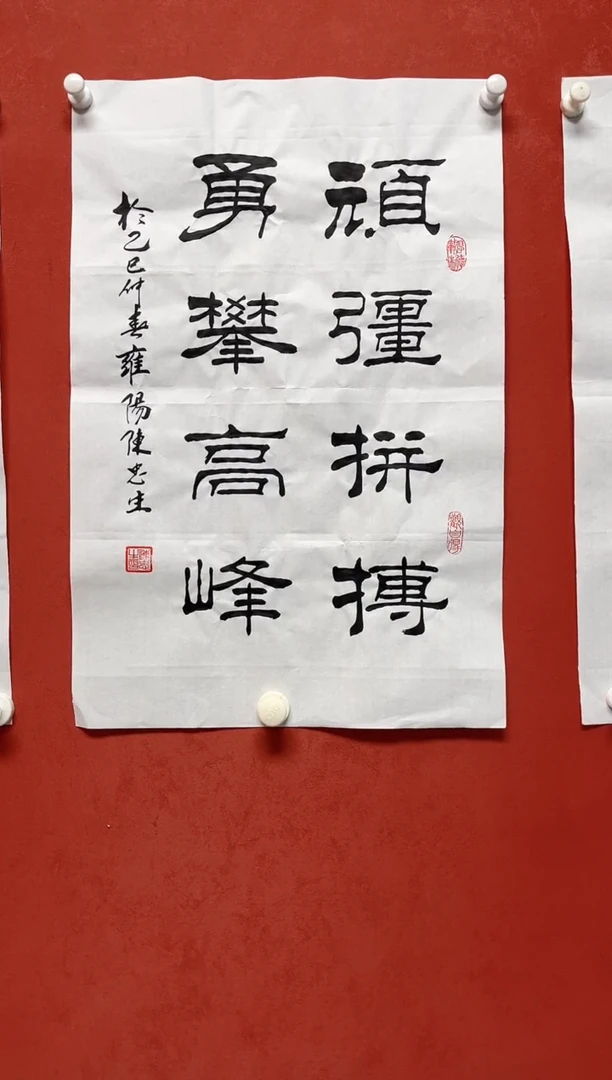 頑彊拼搏
勇攀高峰
於乙巳仲春雍陽陳忠生